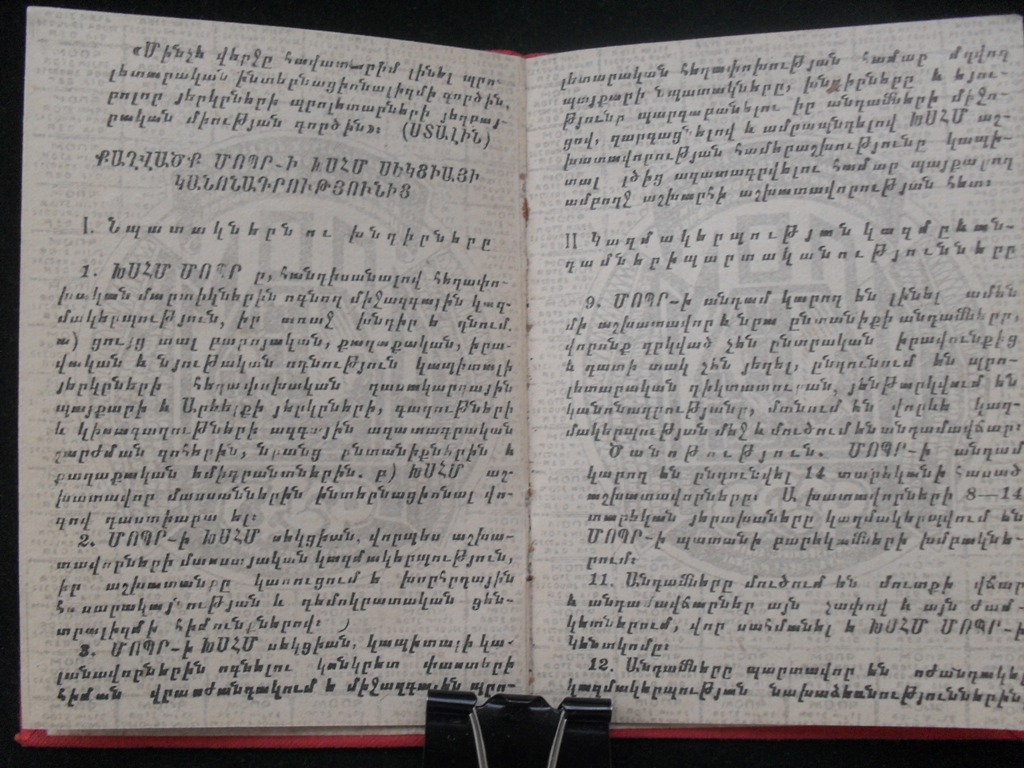 «Մինչև վերջը հավատարիմ լինել պրո-
լետարական ինտերնացիոնալիզմի գործին,
բոլոր յերկրների պրոլետարների յեղբայ-
րական միության գործին»: (ՍՏԱԼԻՆ)
ՔԱՂՎԱԾՔ ՄՈՊՐ-Ի ԽՍՀՄ ՍԵԿՑԻԱՅԻ
ԿԱՆՈՆԱԴՐՈՒԹՅՈՒՆԻՑ
I. Նպատակներն ու խնդիրները
1. ԽՍՀՄ ՄՈՊՐ ը, հանդիսանալով հեղափո-
խական մարտիկներին ոգնող միջազգային կազ-
մակերպություն, իր առաջ խնդիր ե դնում.
ա) ցույց տալ բարոյական, քաղաքական, իրա-
վական և նյութական ոգնություն կապիտալի
յերկրների հեղափոխական դասակարգային
պայքարի և Արևելքի յերկրների, գաղութների
և կիսագաղութների ազգային ազատագրական
շարժման զոհերին, նրանց ընտանիքներին և
քաղաքական եմիգրանտներին. բ) ԽՍՀՄ աշ-
խատավոր մասսաներին ինտերնացիոնալ վո-
գով դաստիարակել:
2. ՄՈՊՐ-ի ԽՍՀՄ սեկցիան, վորպես աշխա-
տավորների մասսայական կազմակերպություն,
իր աշխատանքը կառուցում ե խորհրդային
հասարակայնության և դեմոկրատական ցեն-
տրալիզմի հիմունքներով:
3. ՄՈՊՐ-ի ԽՍՀՄ սեկցիան, կապիտալի կա-
լանավորներին ոգնելու կոնկրետ փաստերի
հիման վրա ժանդակում ե միջազգային պրո-
լետարական հեղափոխության համար մղվող
պայքարի նպատակները, խնդիրները և եյու-
թյունը պարզաբանելու իր անդամների միջո-
ցով, զարգացնելով և ամրապնդելով ԽՍՀՄ աշ-
խատավորության համերաշխությունը կապի-
տալի լծից ազատագրվելու համար պայքարող
ամբողջ աշխարհի աշխատավորության հետ:
II Կազմակերպության կազմը և ան-
դամների պարտականությունները
9. ՄՈՊՐ-ի անդամ կարող են լինել ամեն
մի աշխատավոր և նրա ընտանիքի անդամները,
վորոնք զրկված չեն ընտրական իրավունքից
և դատի տակ չեն յեղել, ընդունում են պրո-
լետարական դիկտատուրան, յենթարկվում են
կանոնադրությանը, մտնում են վորևե կազ-
մակերպության մեջ և մուծում են անդամավճար:
Ծանոթություն. ՄՈՊՐ-ի անդամ
կարող են ընդունվել 14 տարեկանի հասած
աշխատավորները: Աշխատավորների 8—14
տարեկան յերախաները կազմակերպվում են
ՄՈՊՐ-ի պատանի բարեկամների խմբակնե-
րում:
11. Անդամները մուծում են մուտքի վճար
և անդամավճարներ այն չափով և այն ժամ-
կետներում, վոր սահմանել ե ԽՍՀՄ ՄՈՊՐ-ի
կենտկոմը:
12. Անդամները պարտավոր են ոժանդակել
կազմակերպության նախաձեռնություններին